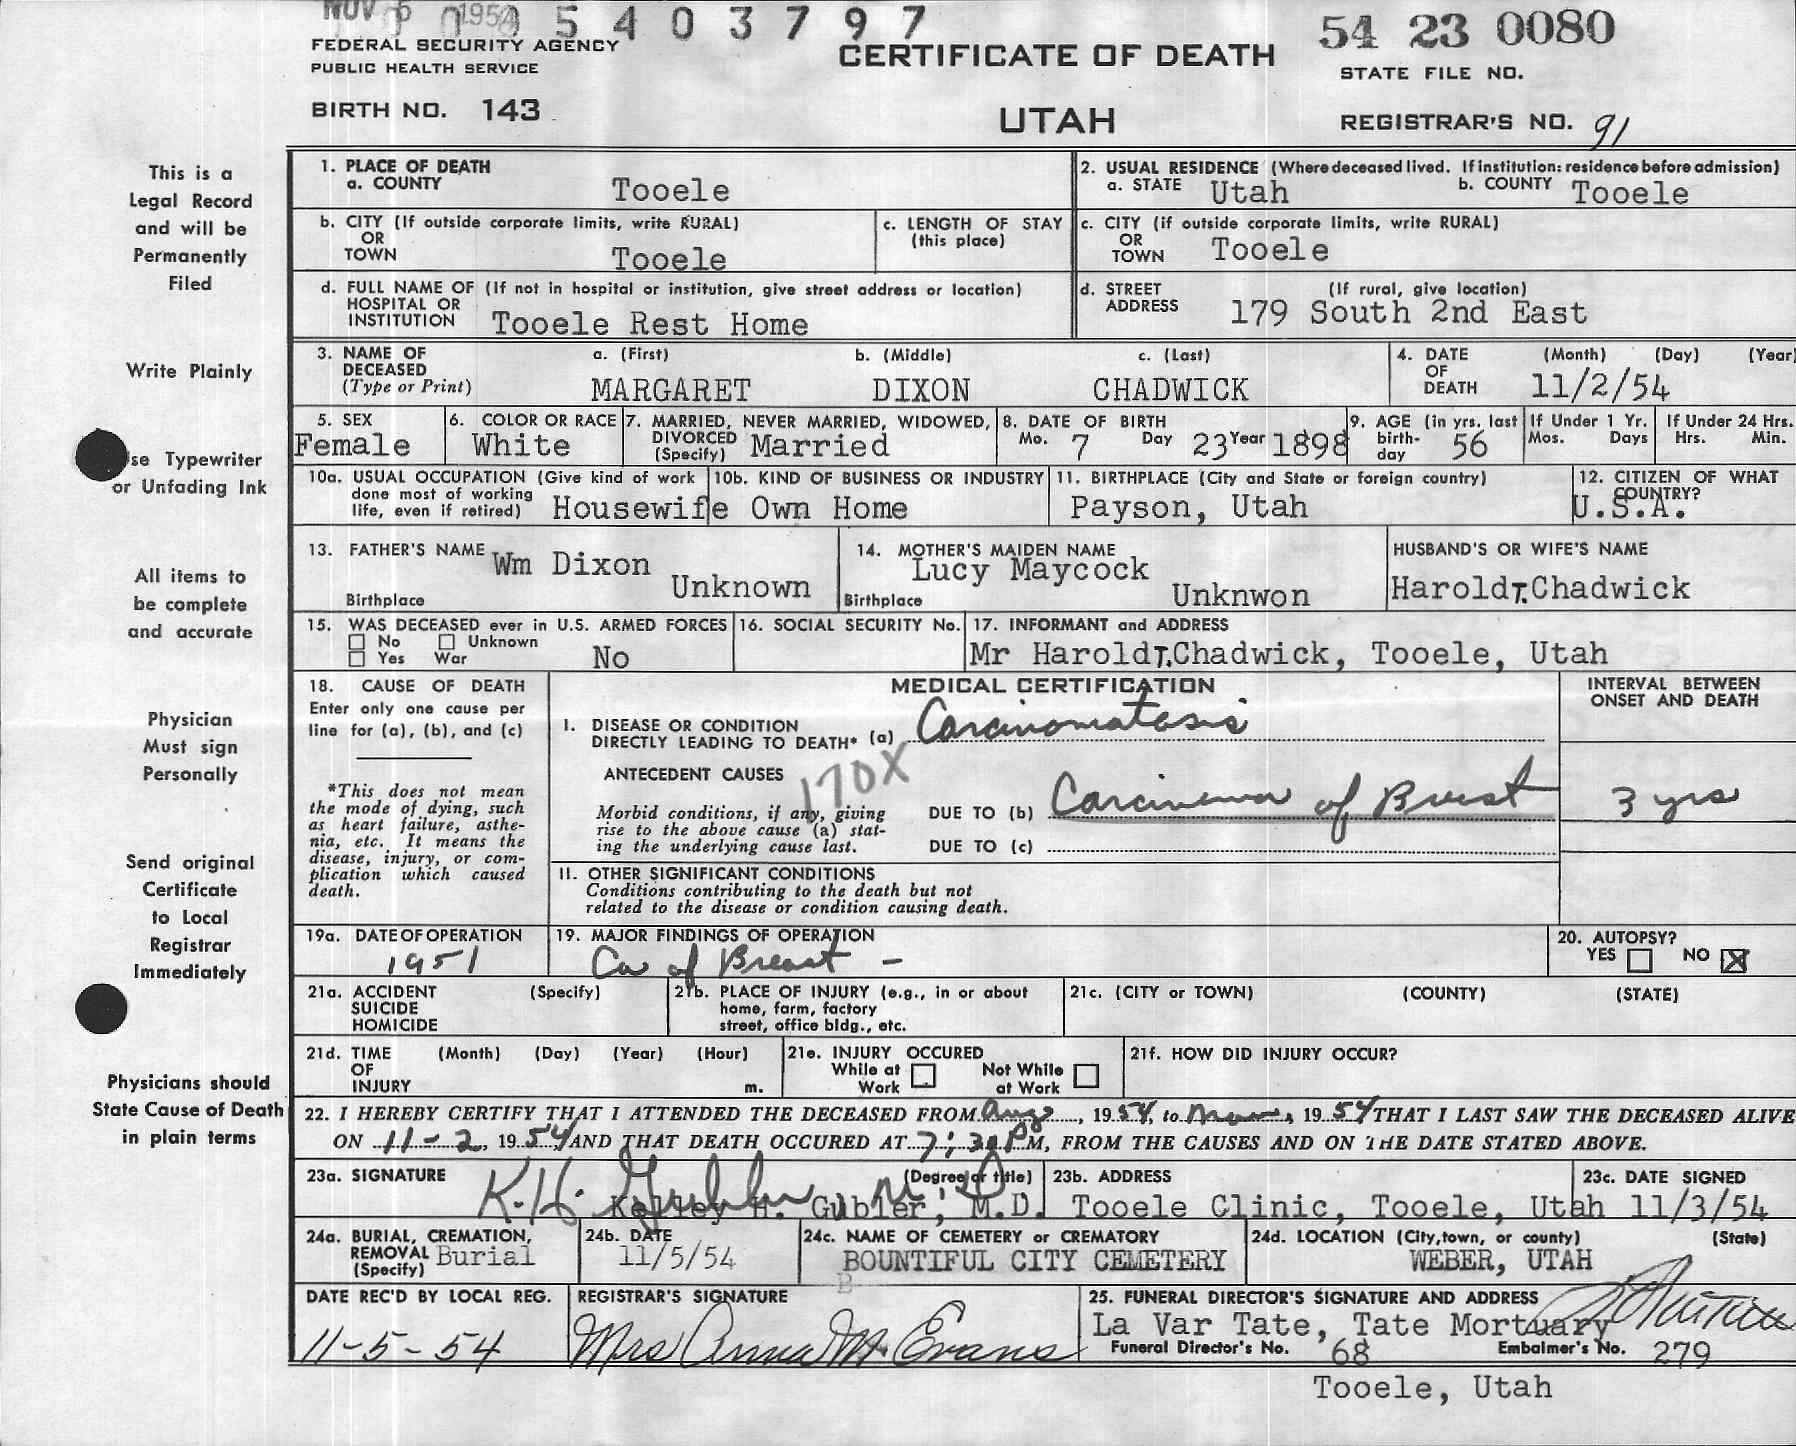 NOV 1954
0 5 4 0 3 7 9 7
54 23 0080
FEDERAL SECURITY AGENCY
PUBLIC HEALTH SERVICE
CERTIFICATE OF DEATH
STATE FILE NO.
BIRTH NO. 143
UTAH
REGISTRAR'S NO. 91
This is a
Legal Record
and will be
Permanently
Filed
Write Plainly
se Typewriter
or Unfading Ink
All items to
be complete
and accurate
Physician
Must sign
Personally
Send original
Certificate
to Local
Registrar
Immediately
Physicians should
State Cause of Death
in plain terms
1. PLACE OF DEATH
a. COUNTY Tooele
2. USUAL RESIDENCE (Where deceased lived. If institution: residence before admission)
a. STATE Utah b. COUNTY Tooele
b. CITY (If outside corporate limits, write RURAL)
OR
TOWN Tooele
c. LENGTH OF STAY
(this place)
c. CITY (if outside corporate limits, write RURAL)
OR
TOWN Tooele
d. FULL NAME OF (If not in hospital or institution, give street address or location)
HOSPITAL OR
INSTITUTION Tooele Rest Home
d. STREET (If rural, give location)
ADDRESS 179 South 2nd East
3. NAME OF
DECEASED
(Type or Print)
a. (First) b. (Middle) c. (Last)
MARGARET DIXON CHADWICK
4. DATE
OF
DEATH
(Month) (Day) (Year)
11/2/54
5. SEX
Female
6. COLOR OR RACE
White
7. MARRIED, NEVER MARRIED, WIDOWED,
DIVORCED
(Specify) Married
8. DATE OF BIRTH
Mo. 7 Day 23 Year 1898
9. AGE (in yrs. last
birth-
day 56
If Under 1 Yr.
Mos. Days
If Under 24 Hrs.
Hrs. Min.
10a. USUAL OCCUPATION (Give kind of work
done most of working
life, even if retired) Housewife
10b. KIND OF BUSINESS OR INDUSTRY
Own Home
11. BIRTHPLACE (City and State or foreign country)
Payson, Utah
12. CITIZEN OF WHAT
COUNTRY?
U.S.A.
13. FATHER'S NAME Wm Dixon
Birthplace Unknown
14. MOTHER'S MAIDEN NAME
Lucy Maycock
Birthplace Unknwon
HUSBAND'S OR WIFE'S NAME
Harold T. Chadwick
15. WAS DECEASED ever in U.S. ARMED FORCES
No Unknown
Yes War No
16. SOCIAL SECURITY No.
17. INFORMANT and ADDRESS
Mr Harold T. Chadwick, Tooele, Utah
18. CAUSE OF DEATH
Enter only one cause per
line for (a), (b), and (c)
*This does not mean
the mode of dying, such
as heart failure, asthe-
nia, etc. It means the
disease, injury, or com-
plication which caused
death.
MEDICAL CERTIFICATION
INTERVAL BETWEEN
ONSET AND DEATH
I. DISEASE OR CONDITION
DIRECTLY LEADING TO DEATH* (a) Carcinomatosis
ANTECEDENT CAUSES 170X
Morbid conditions, if any, giving
rise to the above cause (a) stat-
ing the underlying cause last.
DUE TO (b) Carcinoma of Breast 3 yrs
DUE TO (c)
II. OTHER SIGNIFICANT CONDITIONS
Conditions contributing to the death but not
related to the disease or condition causing death.
19a. DATE OF OPERATION
1951
19. MAJOR FINDINGS OF OPERATION
Ca of Breast -
20. AUTOPSY?
YES NO X
21a. ACCIDENT (Specify)
SUICIDE
HOMICIDE
21b. PLACE OF INJURY (e.g., in or about
home, farm, factory
street, office bldg., etc.
21c. (CITY or TOWN) (COUNTY) (STATE)
21d. TIME (Month) (Day) (Year) (Hour)
OF
INJURY m.
21e. INJURY OCCURED
While at
Work
Not While
at Work
21f. HOW DID INJURY OCCUR?
22. I HEREBY CERTIFY THAT I ATTENDED THE DECEASED FROM Aug, 1954, to Nov, 1954 THAT I LAST SAW THE DECEASED ALIVE
ON 11-2, 1954 AND THAT DEATH OCCURED AT 7:30 P M, FROM THE CAUSES AND ON THE DATE STATED ABOVE.
23a. SIGNATURE (Degree or title)
K.H. Gubler M.D
Kelley H. Gubler, M.D.
23b. ADDRESS
Tooele Clinic, Tooele, Utah
23c. DATE SIGNED
11/3/54
24a. BURIAL, CREMATION,
REMOVAL
(Specify) Burial
24b. DATE
11/5/54
24c. NAME OF CEMETERY or CREMATORY
BOUNTIFUL CITY CEMETERY
B
24d. LOCATION (City, town, or county) (State)
WEBER, UTAH
DATE REC'D BY LOCAL REG.
11-5-54
REGISTRAR'S SIGNATURE
Mrs Anna M. Evans
25. FUNERAL DIRECTOR'S SIGNATURE AND ADDRESS
La Var Tate, Tate Mortuary
Funeral Director's No. 68 Embalmer's No. 279
Tooele, Utah